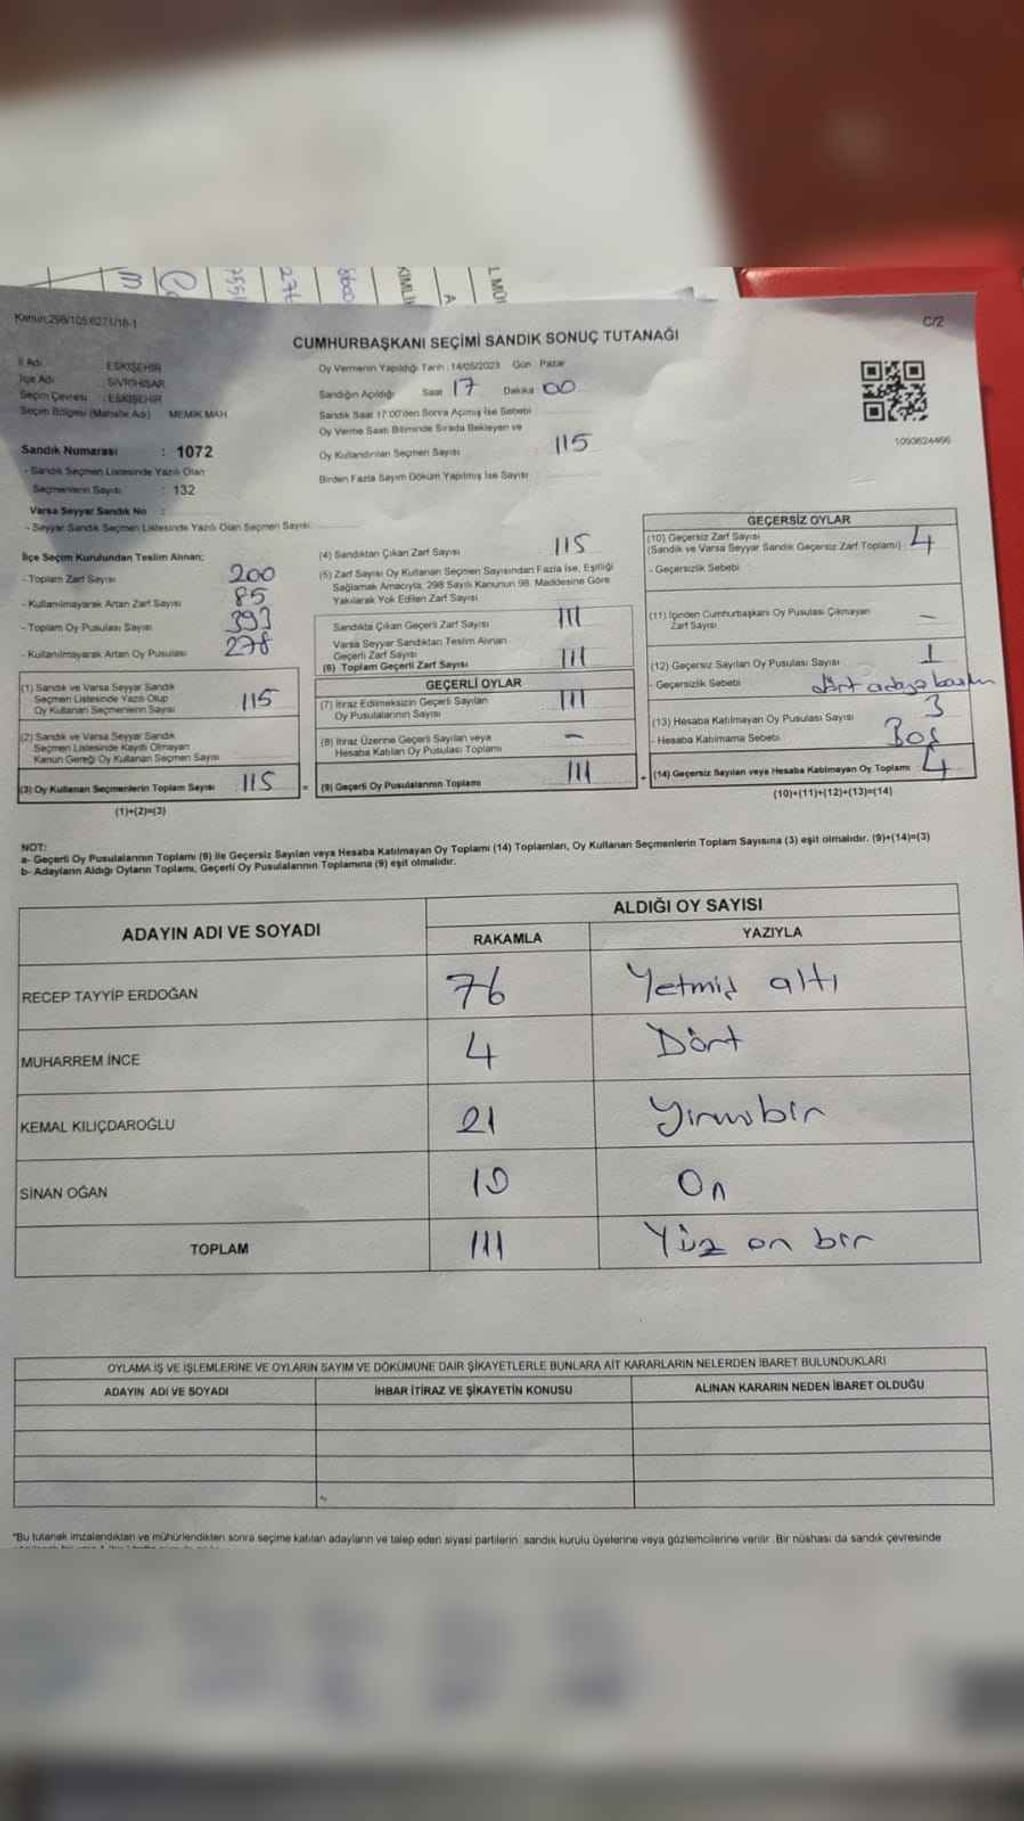 Kanun:298/105;6271/18-1
C/2
CUMHURBAŞKANI SEÇİMİ SANDIK SONUÇ TUTANAĞI
İl Adı : ESKİŞEHİR
İlçe Adı : SİVRİHİSAR
Seçim Çevresi : ESKİŞEHİR
Seçim Bölgesi (Mahalle Adı) MEMİK MAH
Oy Vermenin Yapıldığı Tarih : 14/05/2023 Gün : Pazar
Sandığın Açıldığı Saat 17 Dakika 00
Sandık Saat 17:00'den Sonra Açılmış İse Sebebi
Oy Verme Saati Bitiminde Sırada Bekleyen ve
Oy Kullandırılan Seçmen Sayısı : 115
Birden Fazla Sayım Döküm Yapılmış İse Sayısı
1090624466
Sandık Numarası : 1072
- Sandık Seçmen Listesinde Yazılı Olan
Seçmenlerin Sayısı : 132
Varsa Seyyar Sandık No :
- Seyyar Sandık Seçmen Listesinde Yazılı Olan Seçmen Sayısı:
İlçe Seçim Kurulundan Teslim Alınan;
- Toplam Zarf Sayısı 200
- Kullanılmayarak Artan Zarf Sayısı 85
- Toplam Oy Pusulası Sayısı 393
- Kullanılmayarak Artan Oy Pusulası 278
(1) Sandık ve Varsa Seyyar Sandık
Seçmen Listesinde Yazılı Olup
Oy Kullanan Seçmenlerin Sayısı 115
(2) Sandık ve Varsa Seyyar Sandık
Seçmen Listesinde Kayıtlı Olmayan
Kanun Gereği Oy Kullanan Seçmen Sayısı
(3) Oy Kullanan Seçmenlerin Toplam Sayısı 115
(1)+(2)=(3)
(4) Sandıktan Çıkan Zarf Sayısı 115
(5) Zarf Sayısı Oy Kullanan Seçmen Sayısından Fazla İse, Eşitliği
Sağlamak Amacıyla, 298 Sayılı Kanunun 98. Maddesine Göre
Yakılarak Yok Edilen Zarf Sayısı
Sandıkta Çıkan Geçerli Zarf Sayısı 111
Varsa Seyyar Sandıktan Teslim Alınan
Geçerli Zarf Sayısı
(6) Toplam Geçerli Zarf Sayısı 111
GEÇERLİ OYLAR
(7) İtiraz Edilmeksizin Geçerli Sayılan
Oy Pusulalarının Sayısı 111
(8) İtiraz Üzerine Geçerli Sayılan veya
Hesaba Katılan Oy Pusulası Toplamı -
(9) Geçerli Oy Pusulalarının Toplamı 111
GEÇERSİZ OYLAR
(10) Geçersiz Zarf Sayısı
(Sandık ve Varsa Seyyar Sandık Geçersiz Zarf Toplamı) 4
- Geçersizlik Sebebi
(11) İçinden Cumhurbaşkanı Oy Pusulası Çıkmayan
Zarf Sayısı -
(12) Geçersiz Sayılan Oy Pusulası Sayısı 1
- Geçersizlik Sebebi dört adaya
(13) Hesaba Katılmayan Oy Pusulası Sayısı 3
- Hesaba Katılmama Sebebi Boş
(14) Geçersiz Sayılan veya Hesaba Katılmayan Oy Toplamı 4
(10)+(11)+(12)+(13)=(14)
NOT:
a- Geçerli Oy Pusulalarının Toplamı (9) ile Geçersiz Sayılan veya Hesaba Katılmayan Oy Toplamı (14) Toplamları, Oy Kullanan Seçmenlerin Toplam Sayısına (3) eşit olmalıdır. (9)+(14)=(3)
b- Adayların Aldığı Oyların Toplamı, Geçerli Oy Pusulalarının Toplamına (9) eşit olmalıdır.
ADAYIN ADI VE SOYADI
ALDIĞI OY SAYISI
RAKAMLA YAZIYLA
RECEP TAYYİP ERDOĞAN 76 Yetmiş altı
MUHARREM İNCE 4 Dört
KEMAL KILIÇDAROĞLU 21 Yirmibir
SİNAN OĞAN 10 On
TOPLAM 111 Yüz on bir
OYLAMA İŞ VE İŞLEMLERİNE VE OYLARIN SAYIM VE DÖKÜMÜNE DAİR ŞİKAYETLERLE BUNLARA AİT KARARLARIN NELERDEN İBARET BULUNDUKLARI
ADAYIN ADI VE SOYADI İHBAR İTİRAZ VE ŞİKAYETİN KONUSU ALINAN KARARIN NEDEN İBARET OLDUĞU
*Bu tutanak imzalandıktan ve mühürlendikten sonra seçime katılan adayların ve talep eden siyasi partilerin sandık kurulu üyelerine veya gözlemcilerine verilir. Bir nüshası da sandık çevresinde